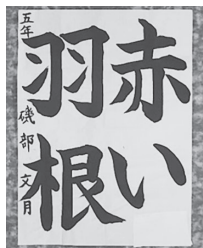 赤い
羽根
五年 磯部文月